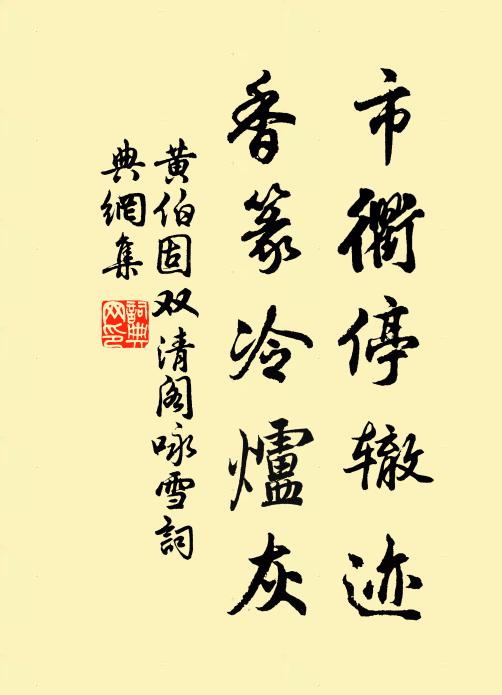 市衢停辙迹
香篆冷爐灰
黄伯固双清阁咏雪詞
典網集
詞典网印